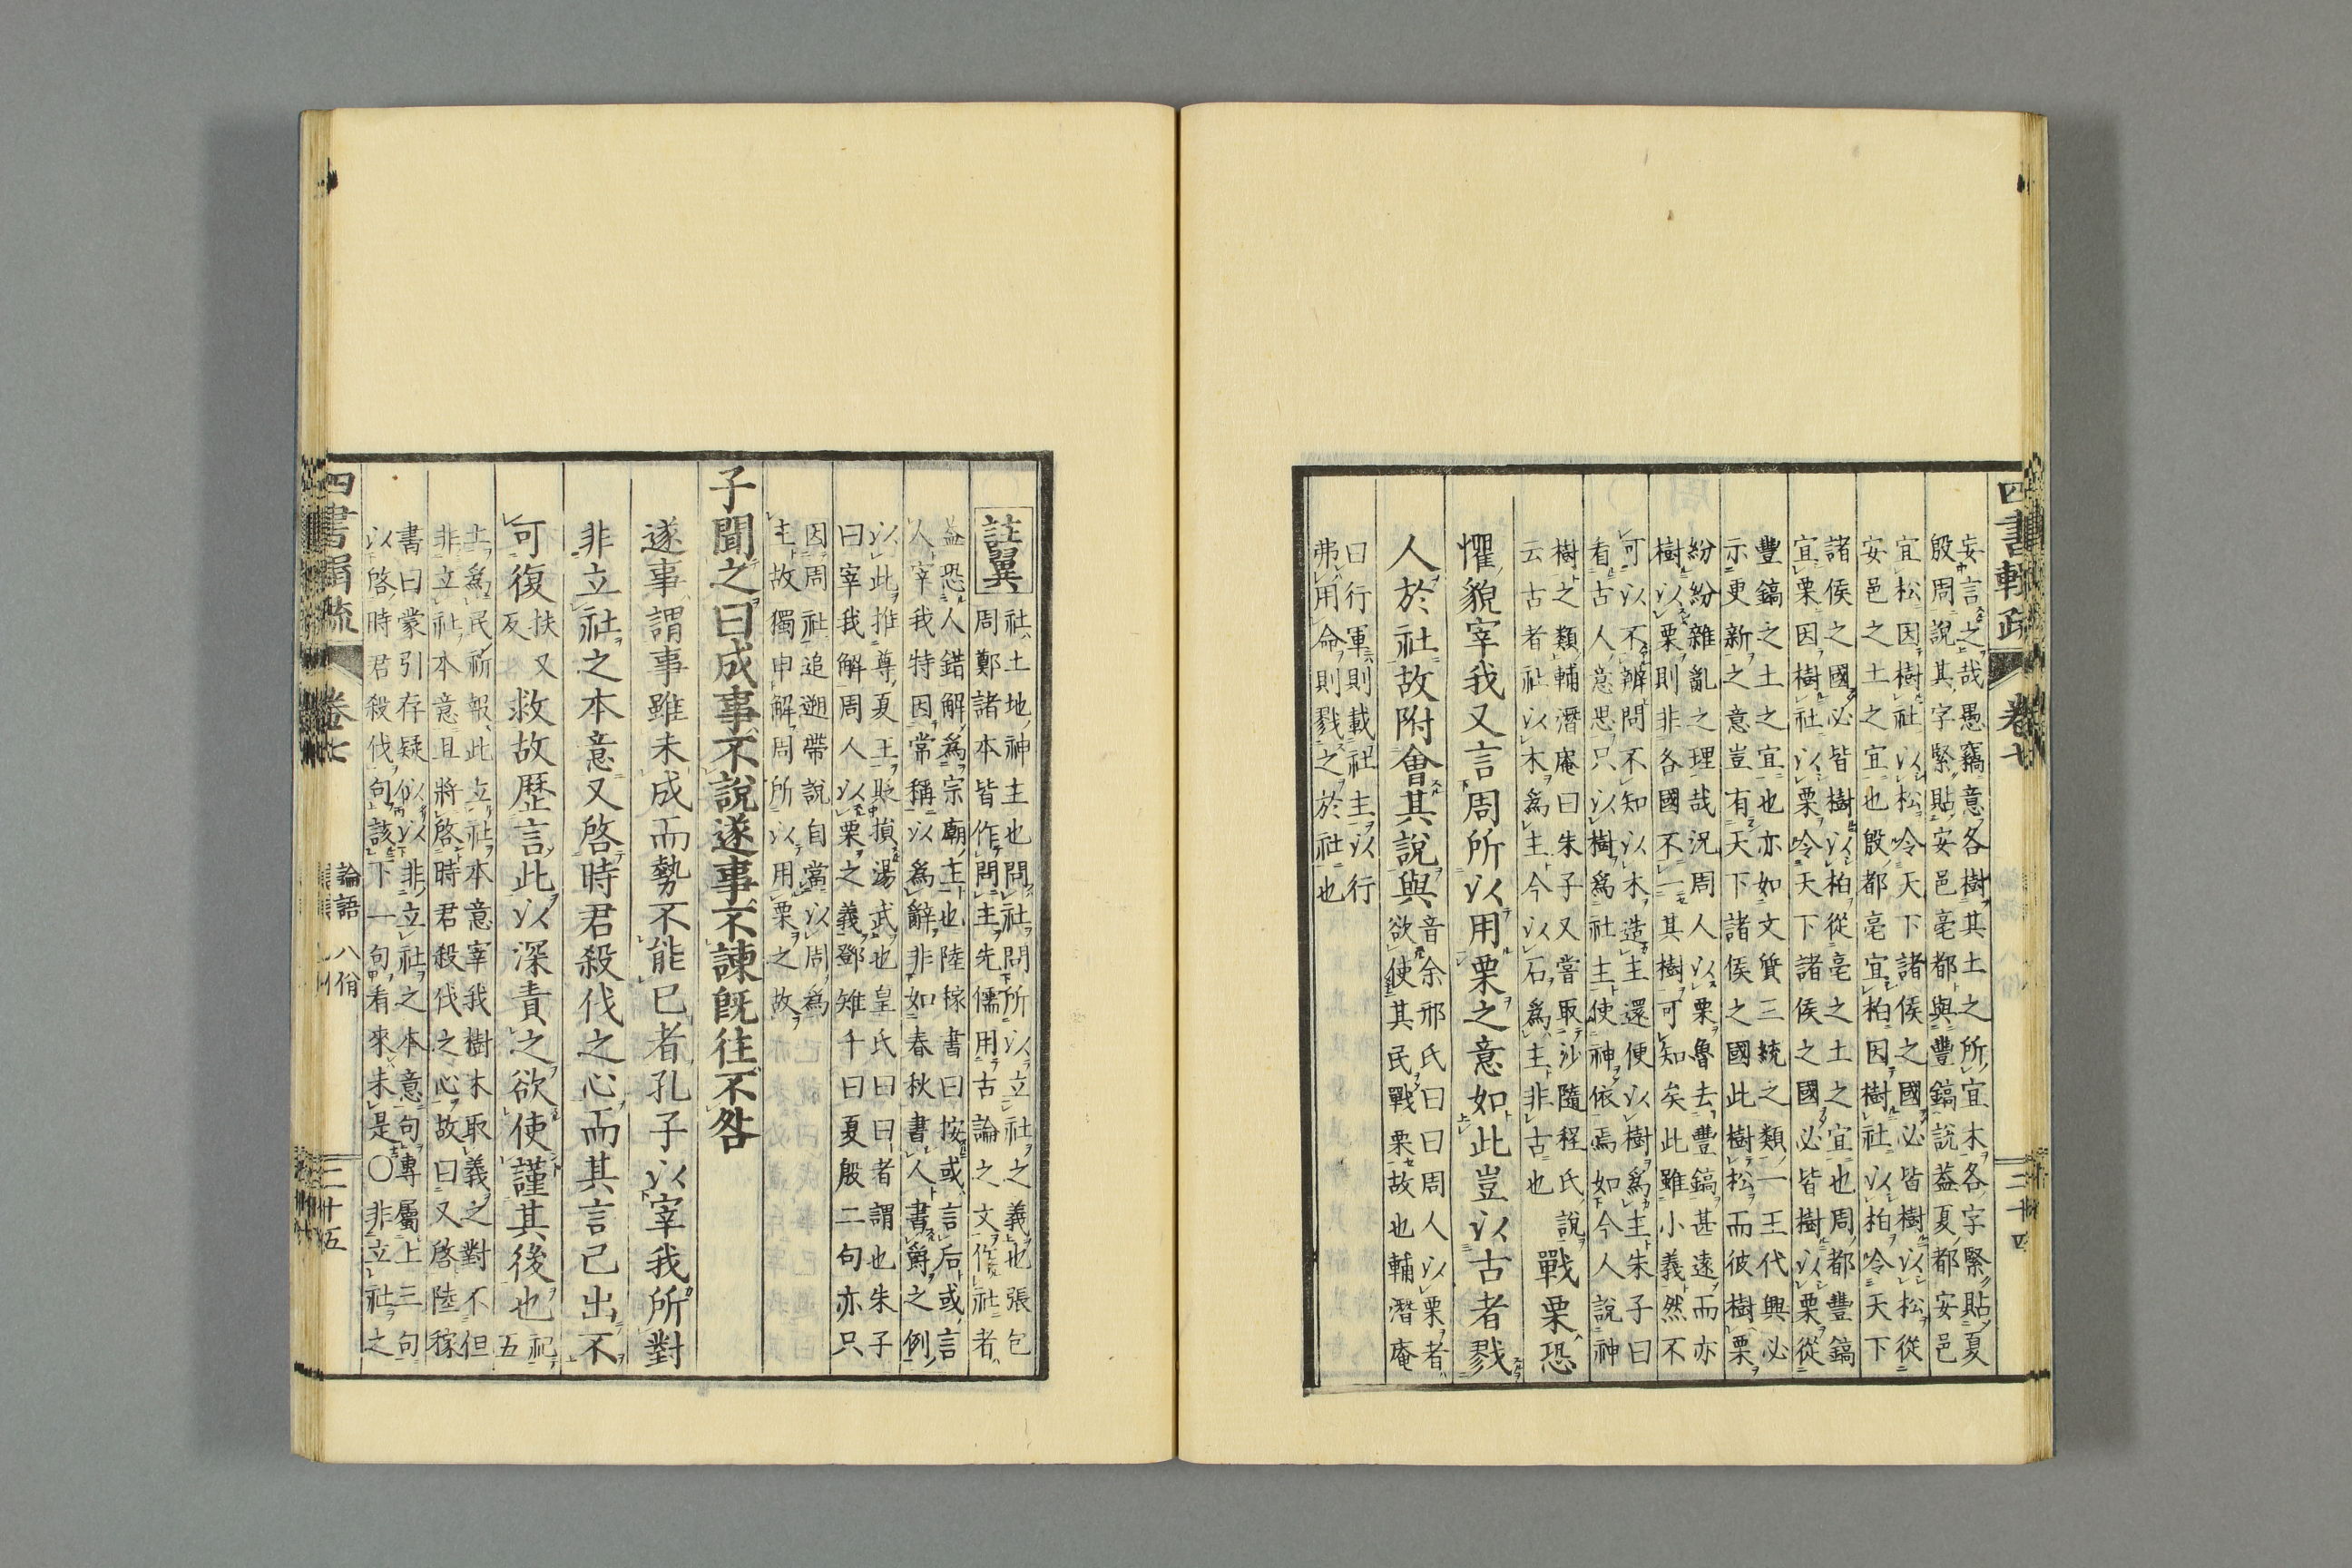 四書輯疏 卷七 二十四
妄言之哉愚竊意各樹其土之所宜木各字緊貼夏
殷周說其字緊貼安邑亳都與豐鎬說蓋夏都安邑
宜松因樹社以松令天下諸侯之國必皆樹以松從
安邑之土之宜也殷都亳宜柏因樹社以柏令天下
諸侯之國必皆樹以柏從亳之土之宜也周都豐鎬
宜栗因樹社以栗令天下諸侯之國必皆樹以栗從
豐鎬之土之宜也亦如文質三統之類一王代興必
示更新之意豈有天下諸侯之國此樹松而彼樹栗
紛紛雜亂之理哉況周人以栗魯去豐鎬甚遠而亦
樹以栗則非各國不一其樹可知矣此雖小義然不
可以不辨問不知以木造主還便以樹為主朱子曰
看古人意思只以樹為社主使神依焉如今人說神
樹之類輔潛庵曰朱子又嘗取沙隨程氏說
云古者社以木為主今以石為主非古也
戰栗恐
懼貌宰我又言周所以用栗之意如此豈以古者戮
人於社故附會其說與
音余邢氏曰曰周人以栗者
欲使其民戰栗故也輔潛庵
曰行軍則載社主以行
弗用命則戮之於社也
註翼
社土地神主也問社問所以立社之義也張包
周鄭諸本皆作問主先儒用古論之文作社者
蓋恐人錯解為宗廟主也陸稼書曰按或言后或言
人宰我特因常稱以為辭非如春秋書人書爵之例
以此推尊夏王貶損湯武也皇氏曰曰者謂也朱子
曰宰我解周人以栗之義鄧雉千曰夏殷二句亦只
因周社追遡帶說自當以周為
主故獨申解周所以用栗之故
子聞之曰成事不說遂事不諫旣往不咎
遂事謂事雖未成而勢不能已者孔子以宰我所對
非立社之本意又啓時君殺伐之心而其言已出不
可復
扶又
反
救故歷言此以深責之欲使謹其後也
祀五
土為民祈報此立社本意宰我樹木取義之對不但
非立社本意且將啓時君殺伐之心故曰又啓陸稼
書曰蒙引存疑俱以非立社之本意句專屬上三句
以啓時君殺伐句該下一句看來未是○非立社之
四書輯疏 卷七 論語 八佾 二十五